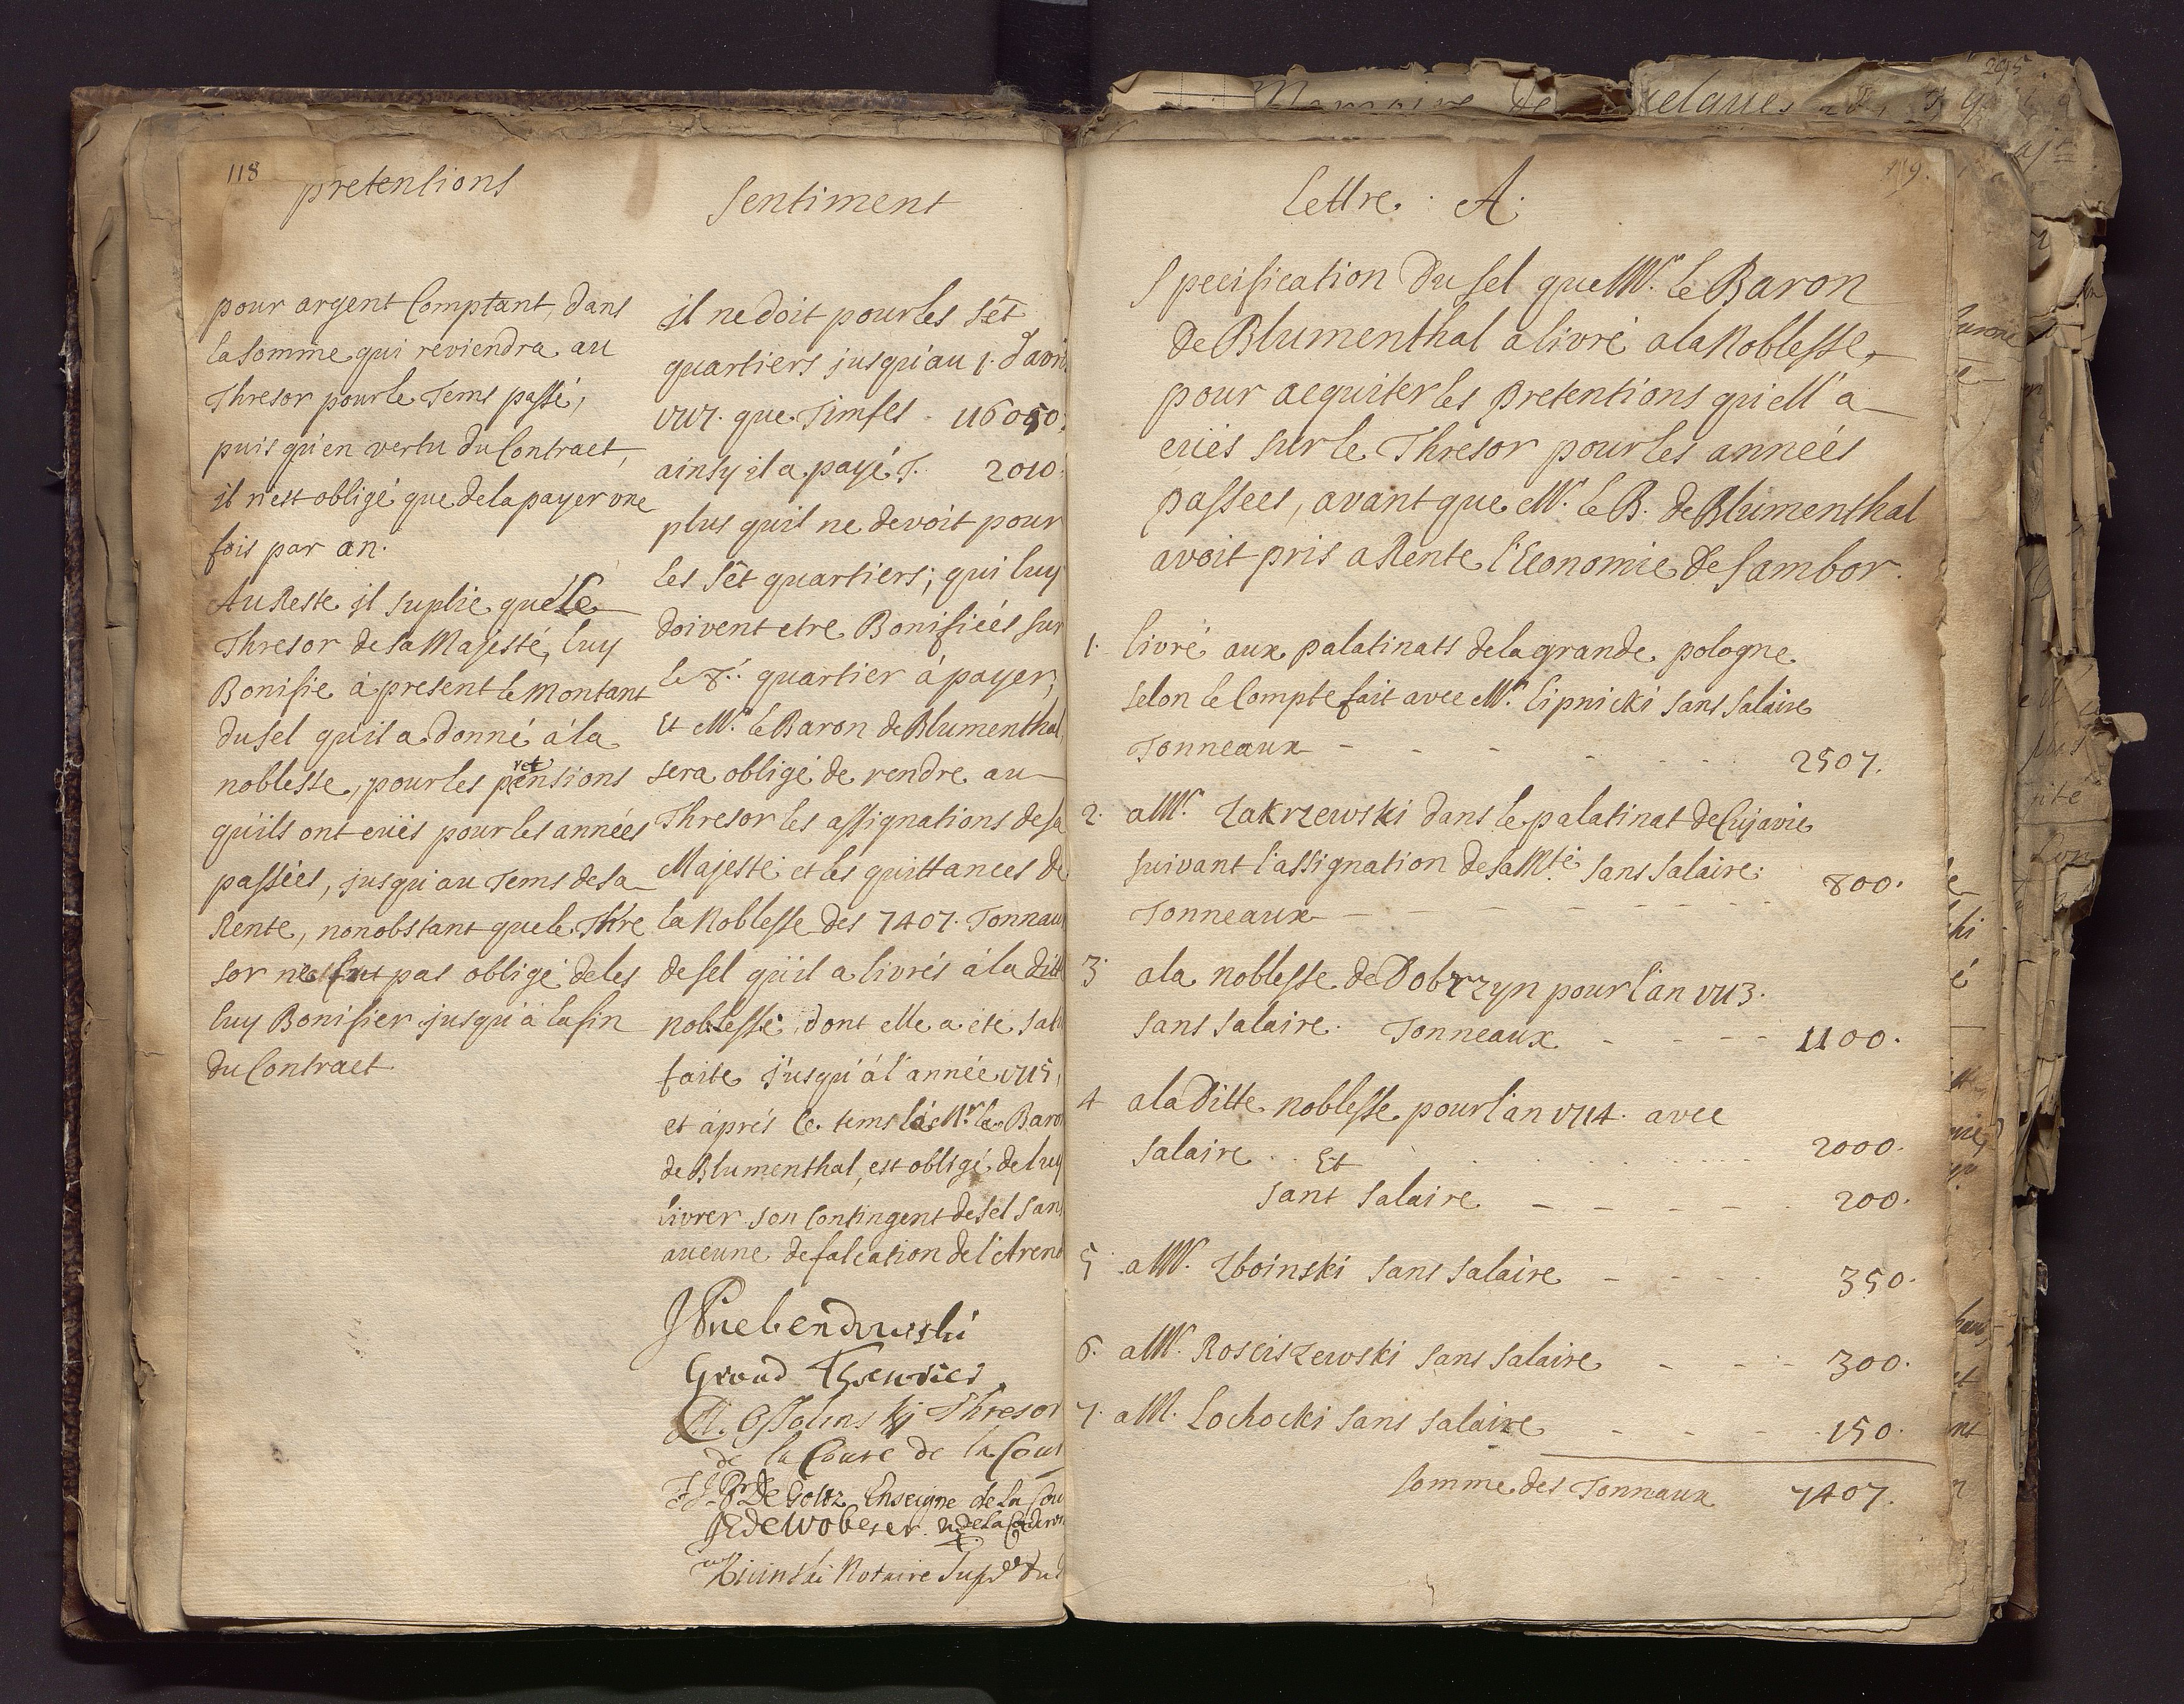 118
pretensions
pour argent Comptant, dans
la somme qui reviendra au
Thresor pour le Tems passé,
puis qu'en vertu du Contract,
il n'est obligé que de la payer une
fois par an.
Au Reste il suplie que Le
Thresor de sa Majesté, luy
Bonifie à present le montant
du sel qu'il a donné à la
noblesse, pour les pretensions
qu'ils ont eües pour les années
passées, jusqu'au Tems de sa
Rente, nonobstant que le Thre
sor ne fut pas obligé de les
luy Bonifier jusqu'à la fin
du Contract.
Sentiment
il ne doit pour les sèt
quartiers jusqu'au 1. d'avri
que Timfes . 116050.
ainsy il a payé T. 2010.
plus qu'il ne devoit pour
les sèt quartiers; qui luy
doivent etre Bonifiéés sur
le 8: quartier à payer;
Et Mr. le Baron de Blumenthal,
sera obligé de rendre au
Thresor les assignations de sa
Majesté et les quittances de
la Noblesse des 7407. Tonnau
de sel qu'il a livrés à la ditt
noblesse, dont elle a été satis
faite j'usqu'à l'année 1715,
et àprés ce tems là Mr. le Baro
de Blumenthal, est obligé de luy
livrer son Contingent de sel sans
aucune defalcation de l'Arend
JPrebendowski
Grand Thresorier
Ossolinskj Thresor
de la Coure de la Cour
De Goltz Enseigne de la Cou
de Wobeser.
Notaire
119.
Lettre : A.
Specification du sel que Mr. le Baron
de Blumenthal a livré a la Noblesse,
pour acquiter les Pretentions qu'ell' a
eües sur le Thresor pour les années
passees, avant que Mr. le B. de Blumenthal
avoit pris a Rente l'Economie de Sambor.
1. livré aux palatinats de la grande pologne
selon le Compte fait avec Mr. Lipnicki sans salaire
Tonneaux - - - - - - 2507.
2. a Mr. Zakrzewski dans le palatinat de Cujavie
suivant l'assignation de sa Mté. sans salaire.
Tonneaux - - - - - - 800.
3. a la noblesse de Dobrzyn pour l'an 1713.
sans salaire. Tonneaux - - - - 1100.
4 a la Ditte noblesse pour l'an 1714. avec
salaire . . Et . . . . . 2000.
sans salaire - - - - - 200.
5 a Mr. Zboinski sans salaire - - - - 350.
6. a Mr. Rosciszewski sans salaire - - - 300.
7. a M. Lochocki sans salaire - - - - 150.
Somme des Tonnaux 7407.